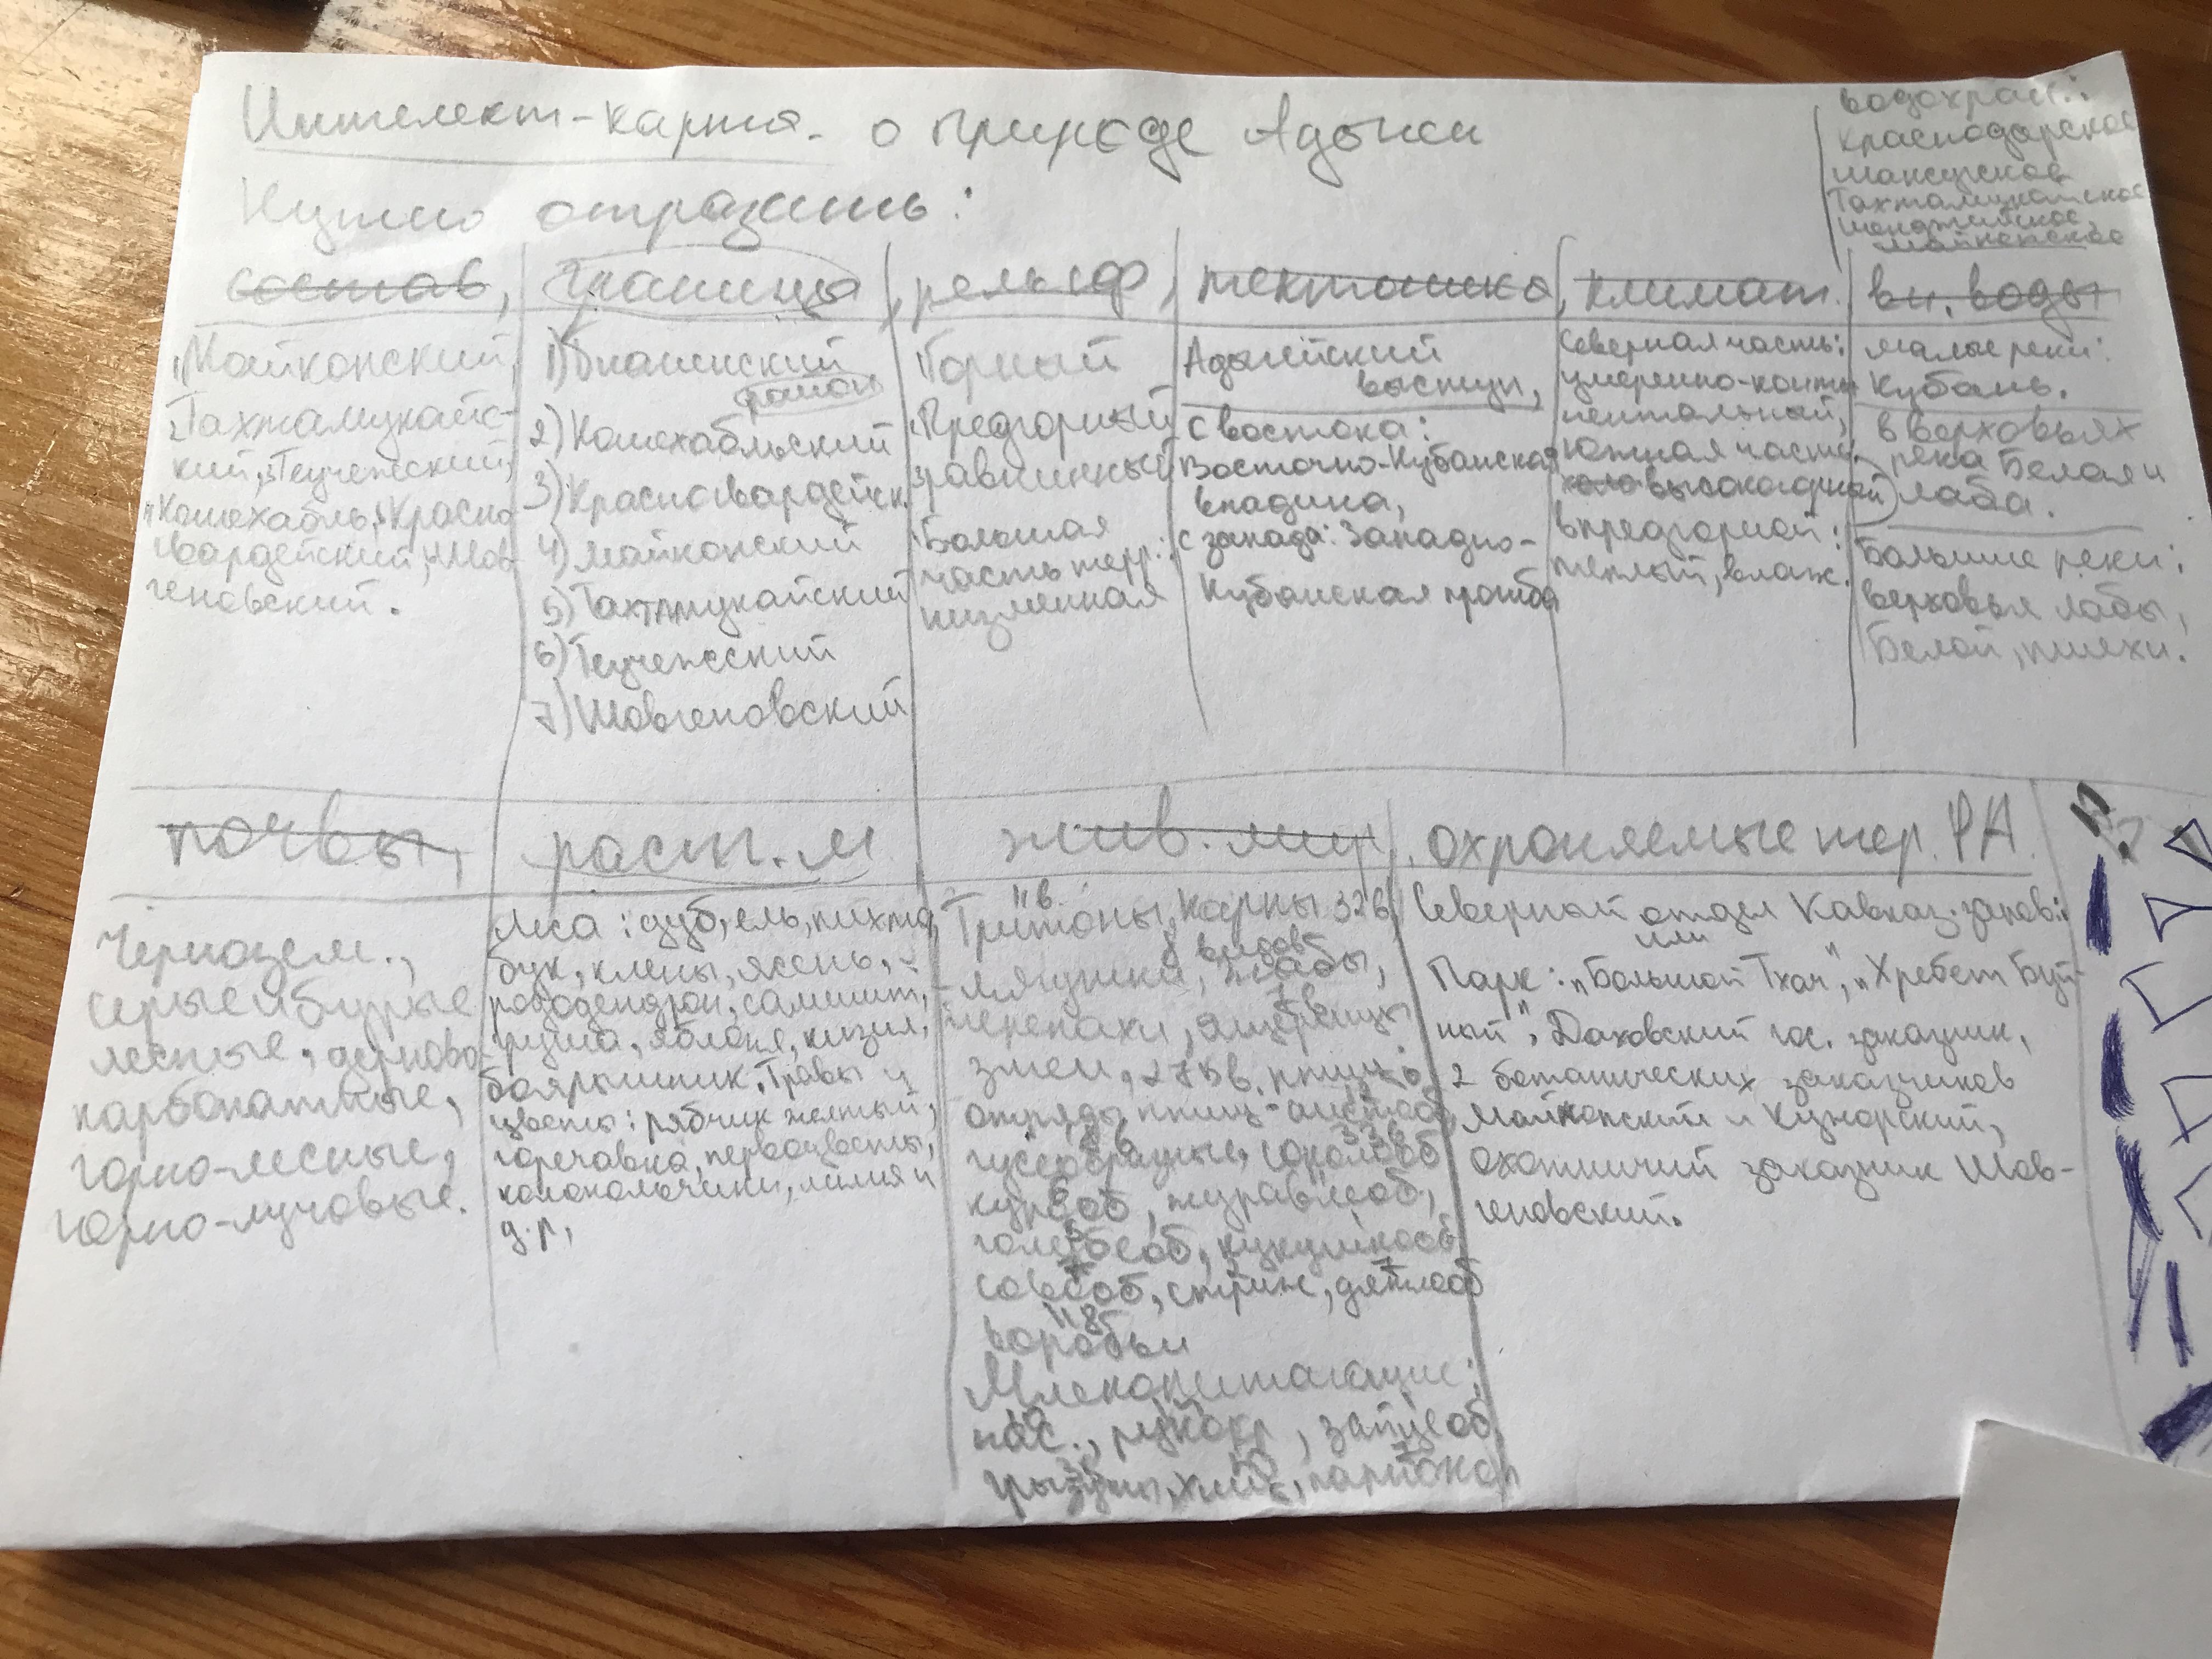 Интелект-карта - о природе Адыгеи
Нужно отразить:
водохран.:
Краснодарское
Шапсугское
Тахтамукайское
Шенджийское,
Майкопское
состав, границы, рельеф, тектоника, климат. вн. воды
1)Майкопский,
2Тахтамукайс-
кий, 3Теучежский,
4Кошехабль, 5Красно
гвардейский, Шов
геновский.
1)Гиагинский
район
2)Кошехабльский
3)Красногвардейск.
4)Майкопский
5)Тахтмукайский
6)Теучежский
7)Шовгеновский
Горный
Предгорный
3)равнинный
Большая
часть терр.:
низменная
Адыгейский
выступ,
С востока:
Восточно-Кубанская
впадина,
С запада: Западно-
Кубанская
Северная часть:
умеренно-конти
нентальный,
Южная часть:
высокогорной
в предгорной:
теплый, влаж.
малые реки:
Кубань.
в верховьях
река Белая и
Лаба.
Большие реки:
верховья Лабы,
Белой, пшехи.
почвы, раст. м жив. мир, охроняемые тер. РА.
Чернозем.,
серые и бурые
лесные, дерново-
карбонатные,
горно-лесные,
горно-луговые.
Леса: дуб, ель, пихта,
бук, клены, ясень,
рододендрон, самшит,
груша, яблоня, кизил,
боярышник. Травы и
цветы: рябчик желтый,
горечавка, первоцветы,
колокольчики, лилия и
д.р,
11 в.
Тритоны, карпы 32в,
8 видов
лягушки, жабы,
черепахи, ящерицы
змеи, 275в. птиц:
отряды птиц - аистооб
гусеобразные, соколооб
курооб, журавлеоб,
голубеоб, кукушкооб,
совооб, стриж, дятлооб
118
воробьи
Млекопитающие:
нас., рукокр, зайцеоб,
грызуны, хищ, парнокоп
Северный отдел Кавказ. запов.:
или
Парк: „Большой Тхач", „Хребет Буй-
ный", Даховский гос. заказник,
2 ботанических заказчиков
Майкопский и Кужорский,
Охотничий заказник Шов-
геновский.